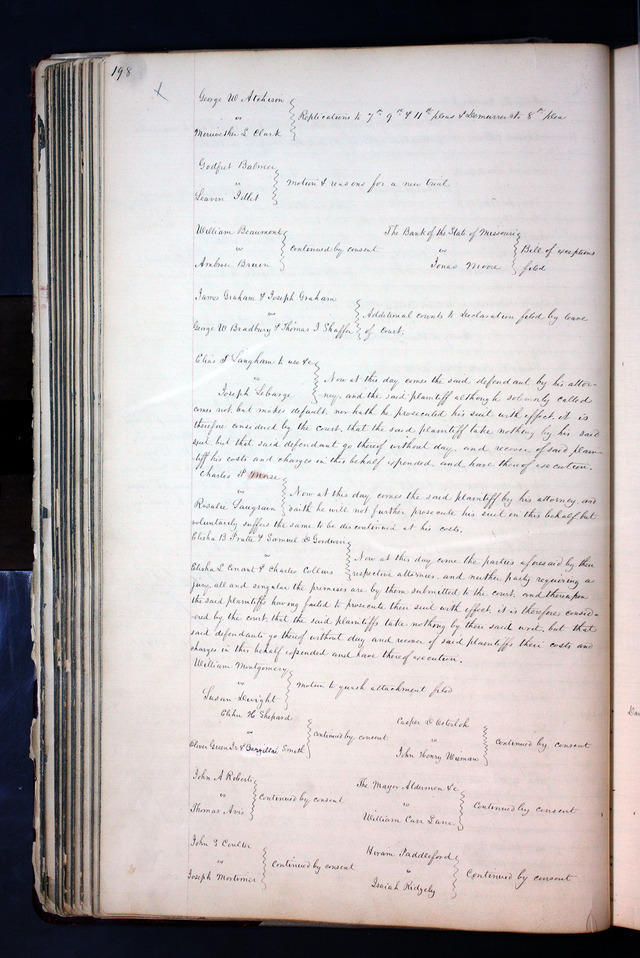 198
George W Atcheson
vs
Meriwether L Clark
Replications to 7th 9th & 11th pleas & Demurrer to 8th plea
Godfret Balmer
vs
Leaven
Motion & reasons for a new trial
William Beaumont
vs
Ambrose Bruin
continued by consent
The Bank of the State of Missouri
vs
Jonas Moore
Bill of exceptions
filed
James Graham & Joseph Graham
vs
George W Bradbury & Thomas J Shaffer
Additional counts to declaration filed by leave
of court.
Elias T Langham to use &c
vs
Joseph Lebarge
Now at this day comes the said defendant by his attor-
ney, and the said plaintiff although solemnly called
comes not, but makes default, nor hath he prosecuted his suit with effect, it is
therefore considered by the court, that the said plaintiff take nothing by his said
suit but that said defendant go thereof without day, and recover of said plain-
tiff his costs and charges in this behalf expended, and have thereof execution.
Charles H Morse
vs
Rosalie Saugrain
Now at this day comes the said plaintiff by his attorney, and
saith he will not further prosecute his suit in this behalf but
voluntarily suffers the same to be discontinued at his costs.
Elisha B Pratte & Samuel D Gordwin
vs
Elisha L Conant & Charles Collins
Now at this day come the parties aforesaid by their
respective attornies, and neither party requiring a
jury, all and singular the premises are by them submitted to the court, and thereupon
the said plaintiffs having failed to prosecute their suit with effect it is therefore consid-
ered by the court, that the said plaintiffs take nothing by their said writ, but that
said defendants go thereof without day and recover of said plaintiffs their costs and
charges in this behalf expended and have thereof execution.
William Montgomery
vs
Susan Dwight
Motion to quash attachment filed
Elihu H Shepard
vs
Oliver Green Jr & Smith
continued by consent
Casper D Osterloh
vs
John Henry Wieman
Continued by consent
John A Roberts
vs
Thomas Avis
continued by consent
The Mayor Aldermen &c
vs
William Carr Lane
Continued by consent
John T Coulter
vs
Joseph Mortimer
continued by consent
Hiram Paddleford
vs
Isaiah Ridgely
Continued by consent